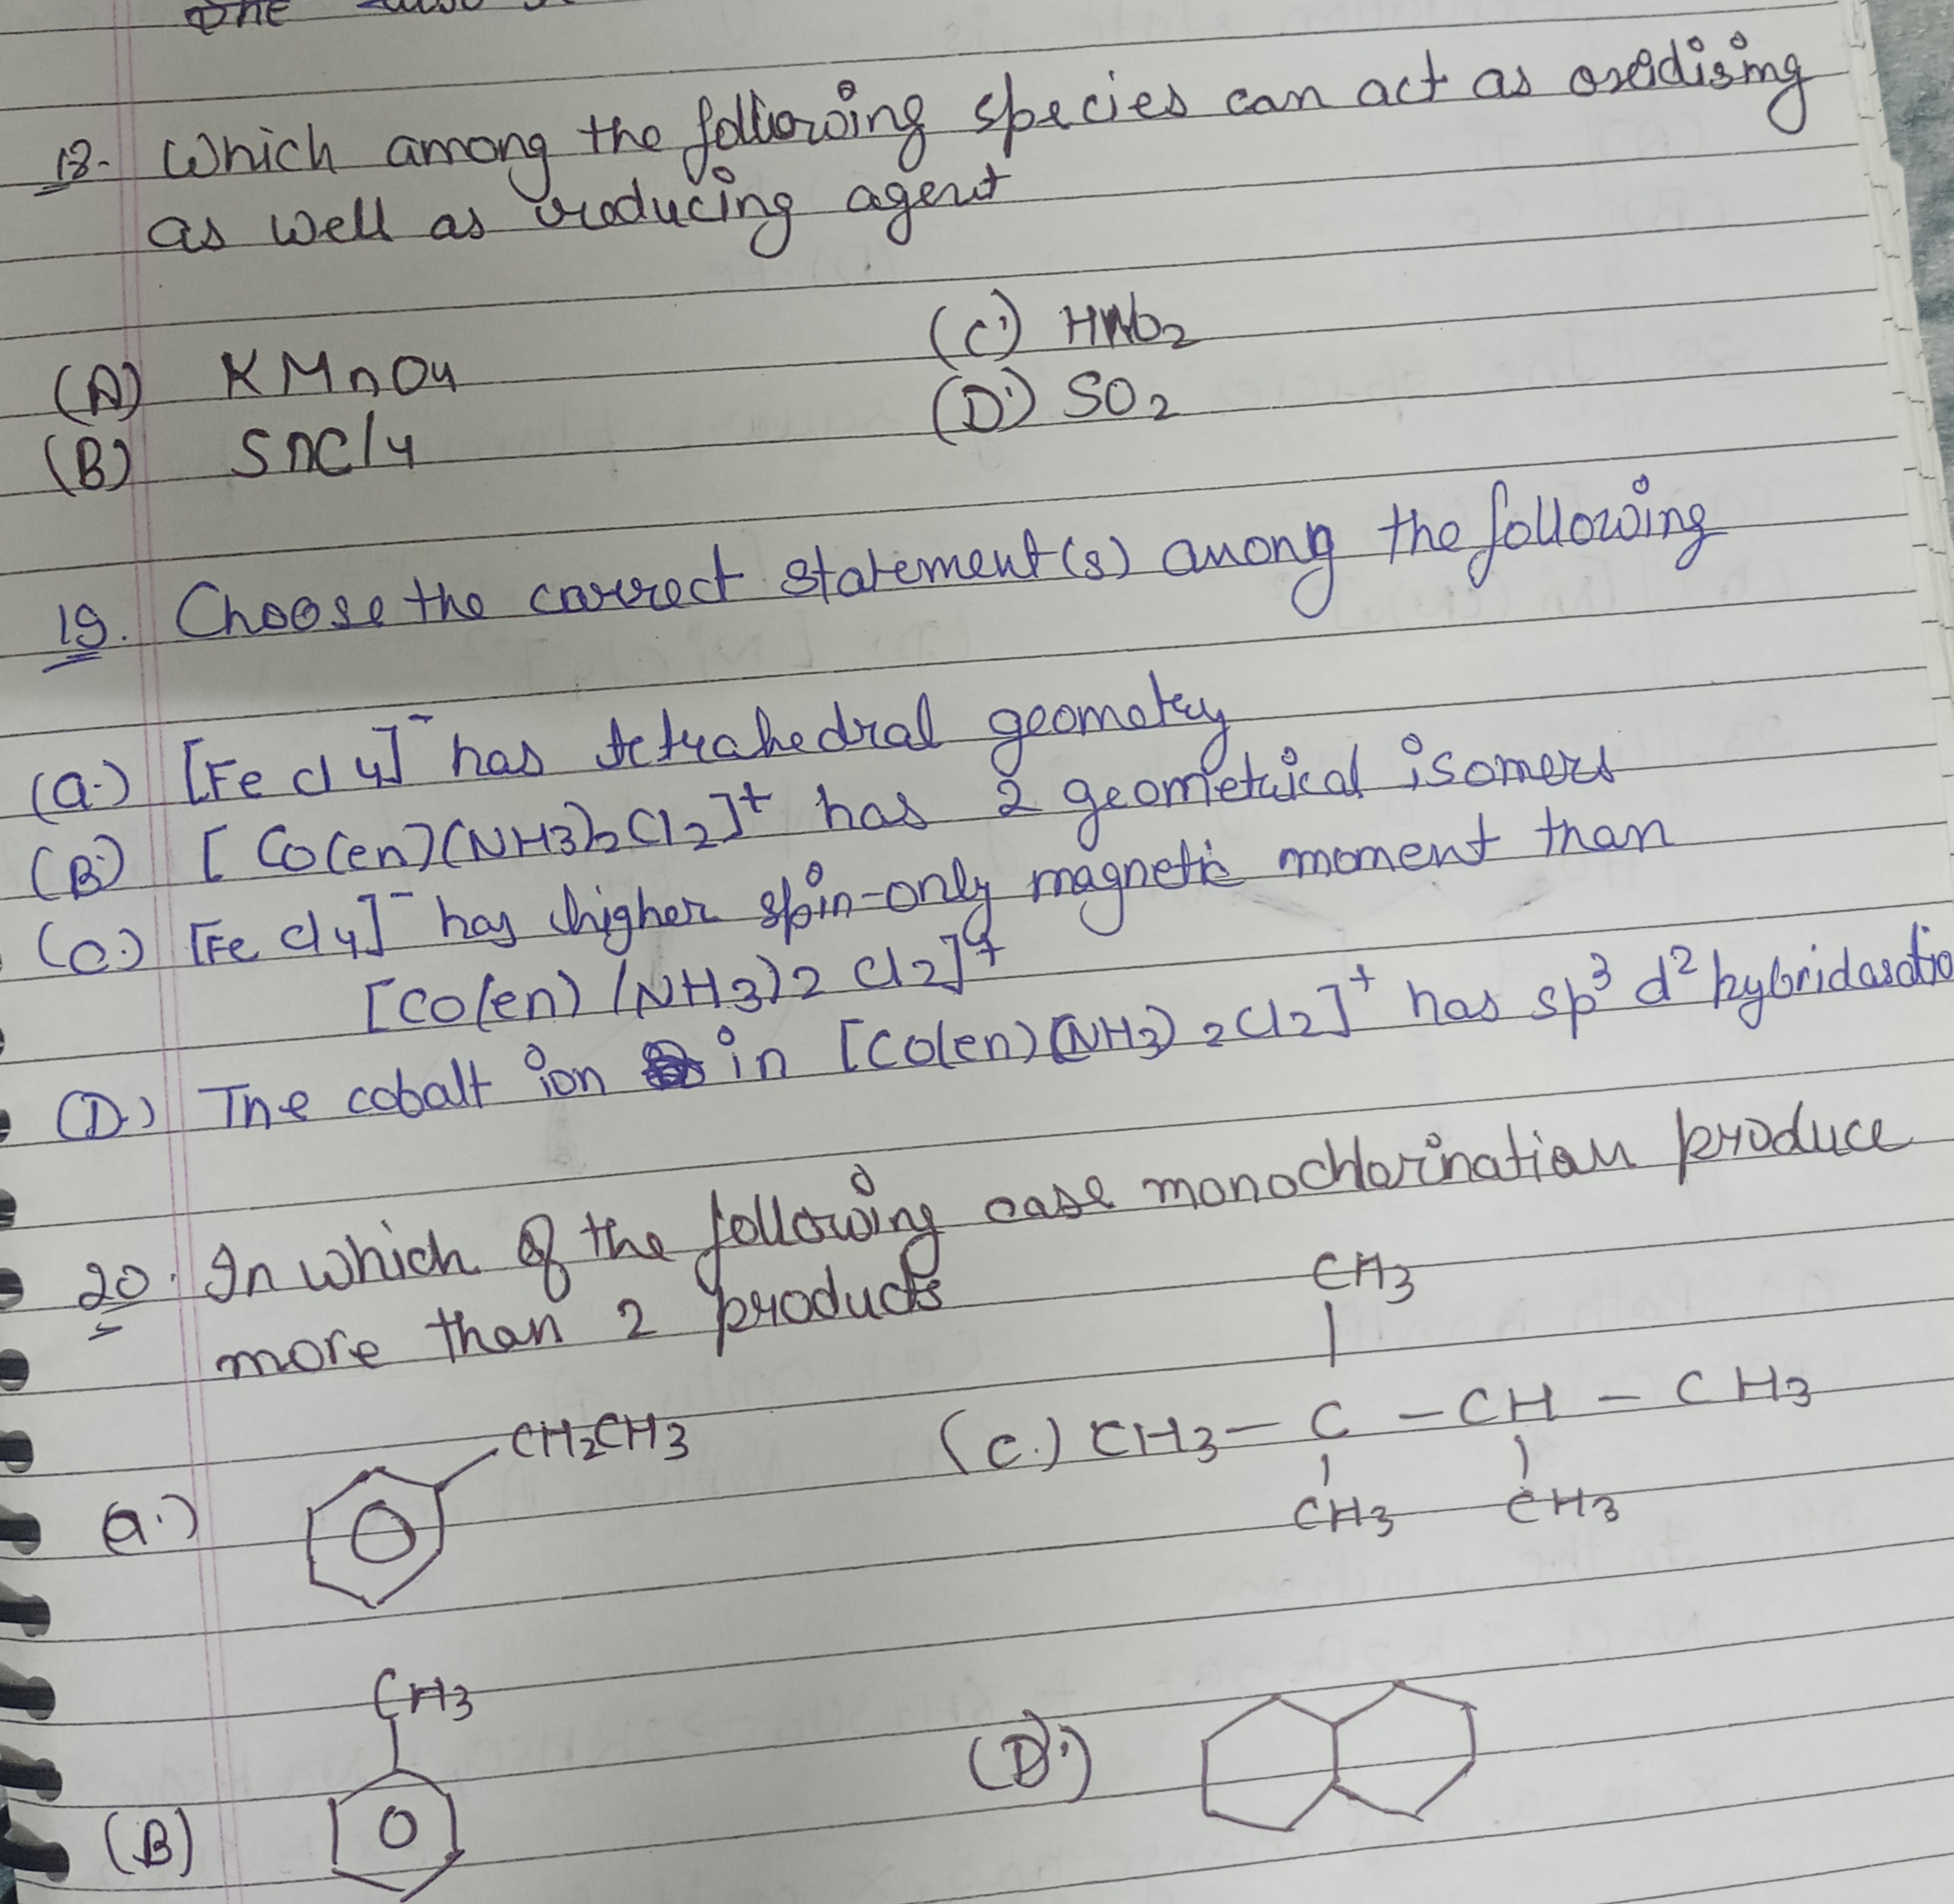 One
18. Which among the following species can act as oxidising
as well as reducing agent
(A) KMnO4
(B) SnCl4
(C) HNO2
(D) SO2
19. Choose the correct statement(s) among the following
(a.) [FeCl4]⁻ has tetrahedral geometry
(B) [Co(en)(NH3)2Cl2]⁺ has 2 geometrical isomers
(C.) [FeCl4]⁻ has higher spin-only magnetic moment than
[Co(en)(NH3)2Cl2]⁺
(D.) The cobalt ion in [Co(en)(NH3)2Cl2]⁺ has sp³d² hybridasatio
20. In which of the following case monochlorination produce
more than 2 products
(a.) CH2CH3
(B) CH3
(C.) CH3 - C - CH - CH3
CH3
CH3 CH3
(D.)